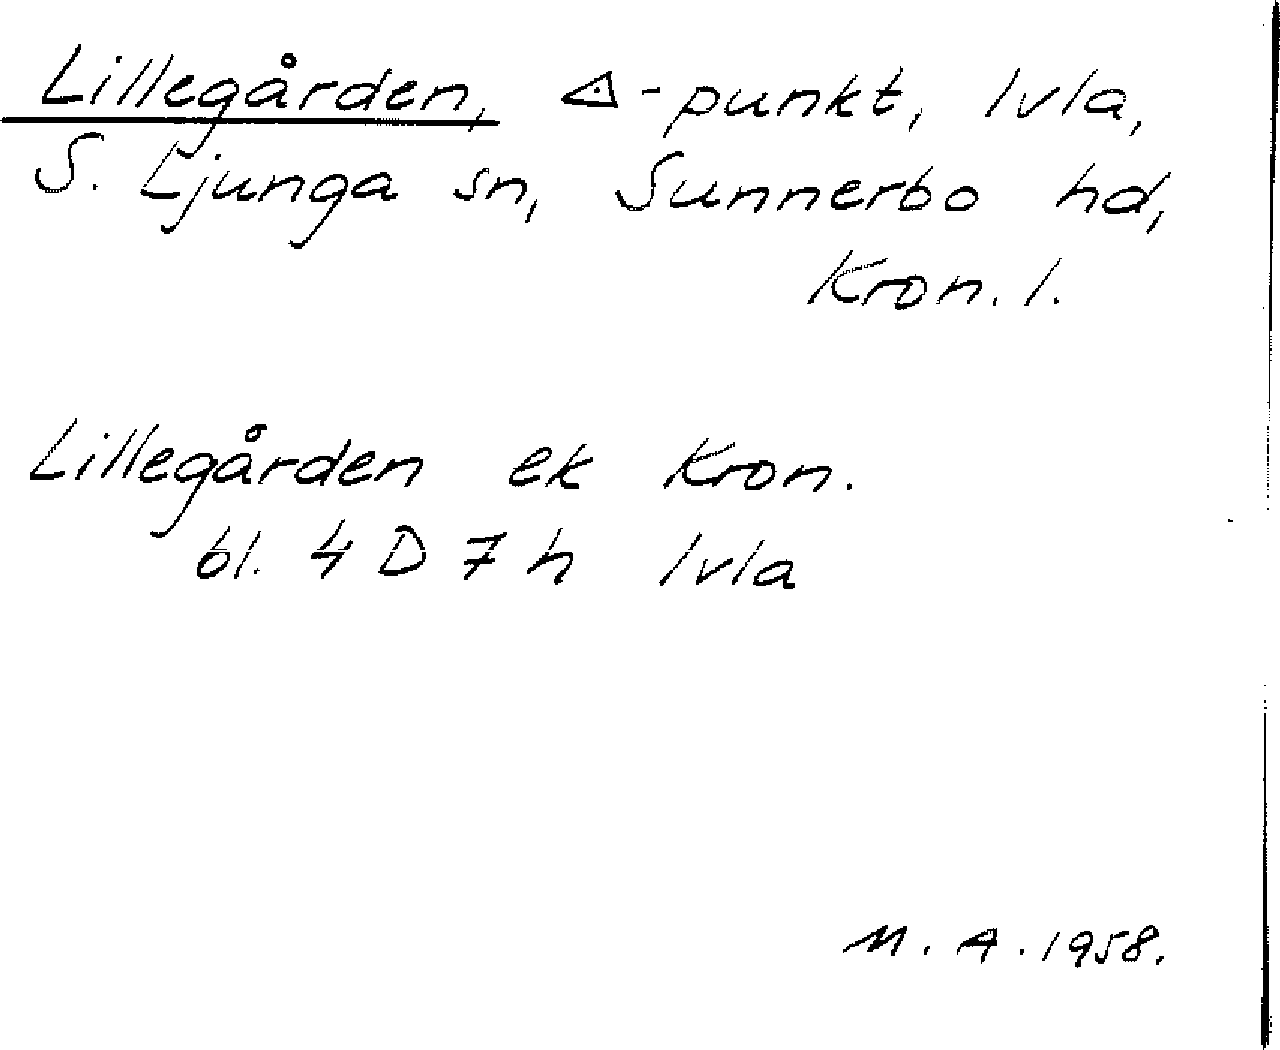 Lillegården, △-punkt, Ivla,
S. Ljunga sn, Sunnerbo hd,
Kron. l.
Lillegården ek Kron.
bl. 4 D 7 h Ivla
M. A. 1958.